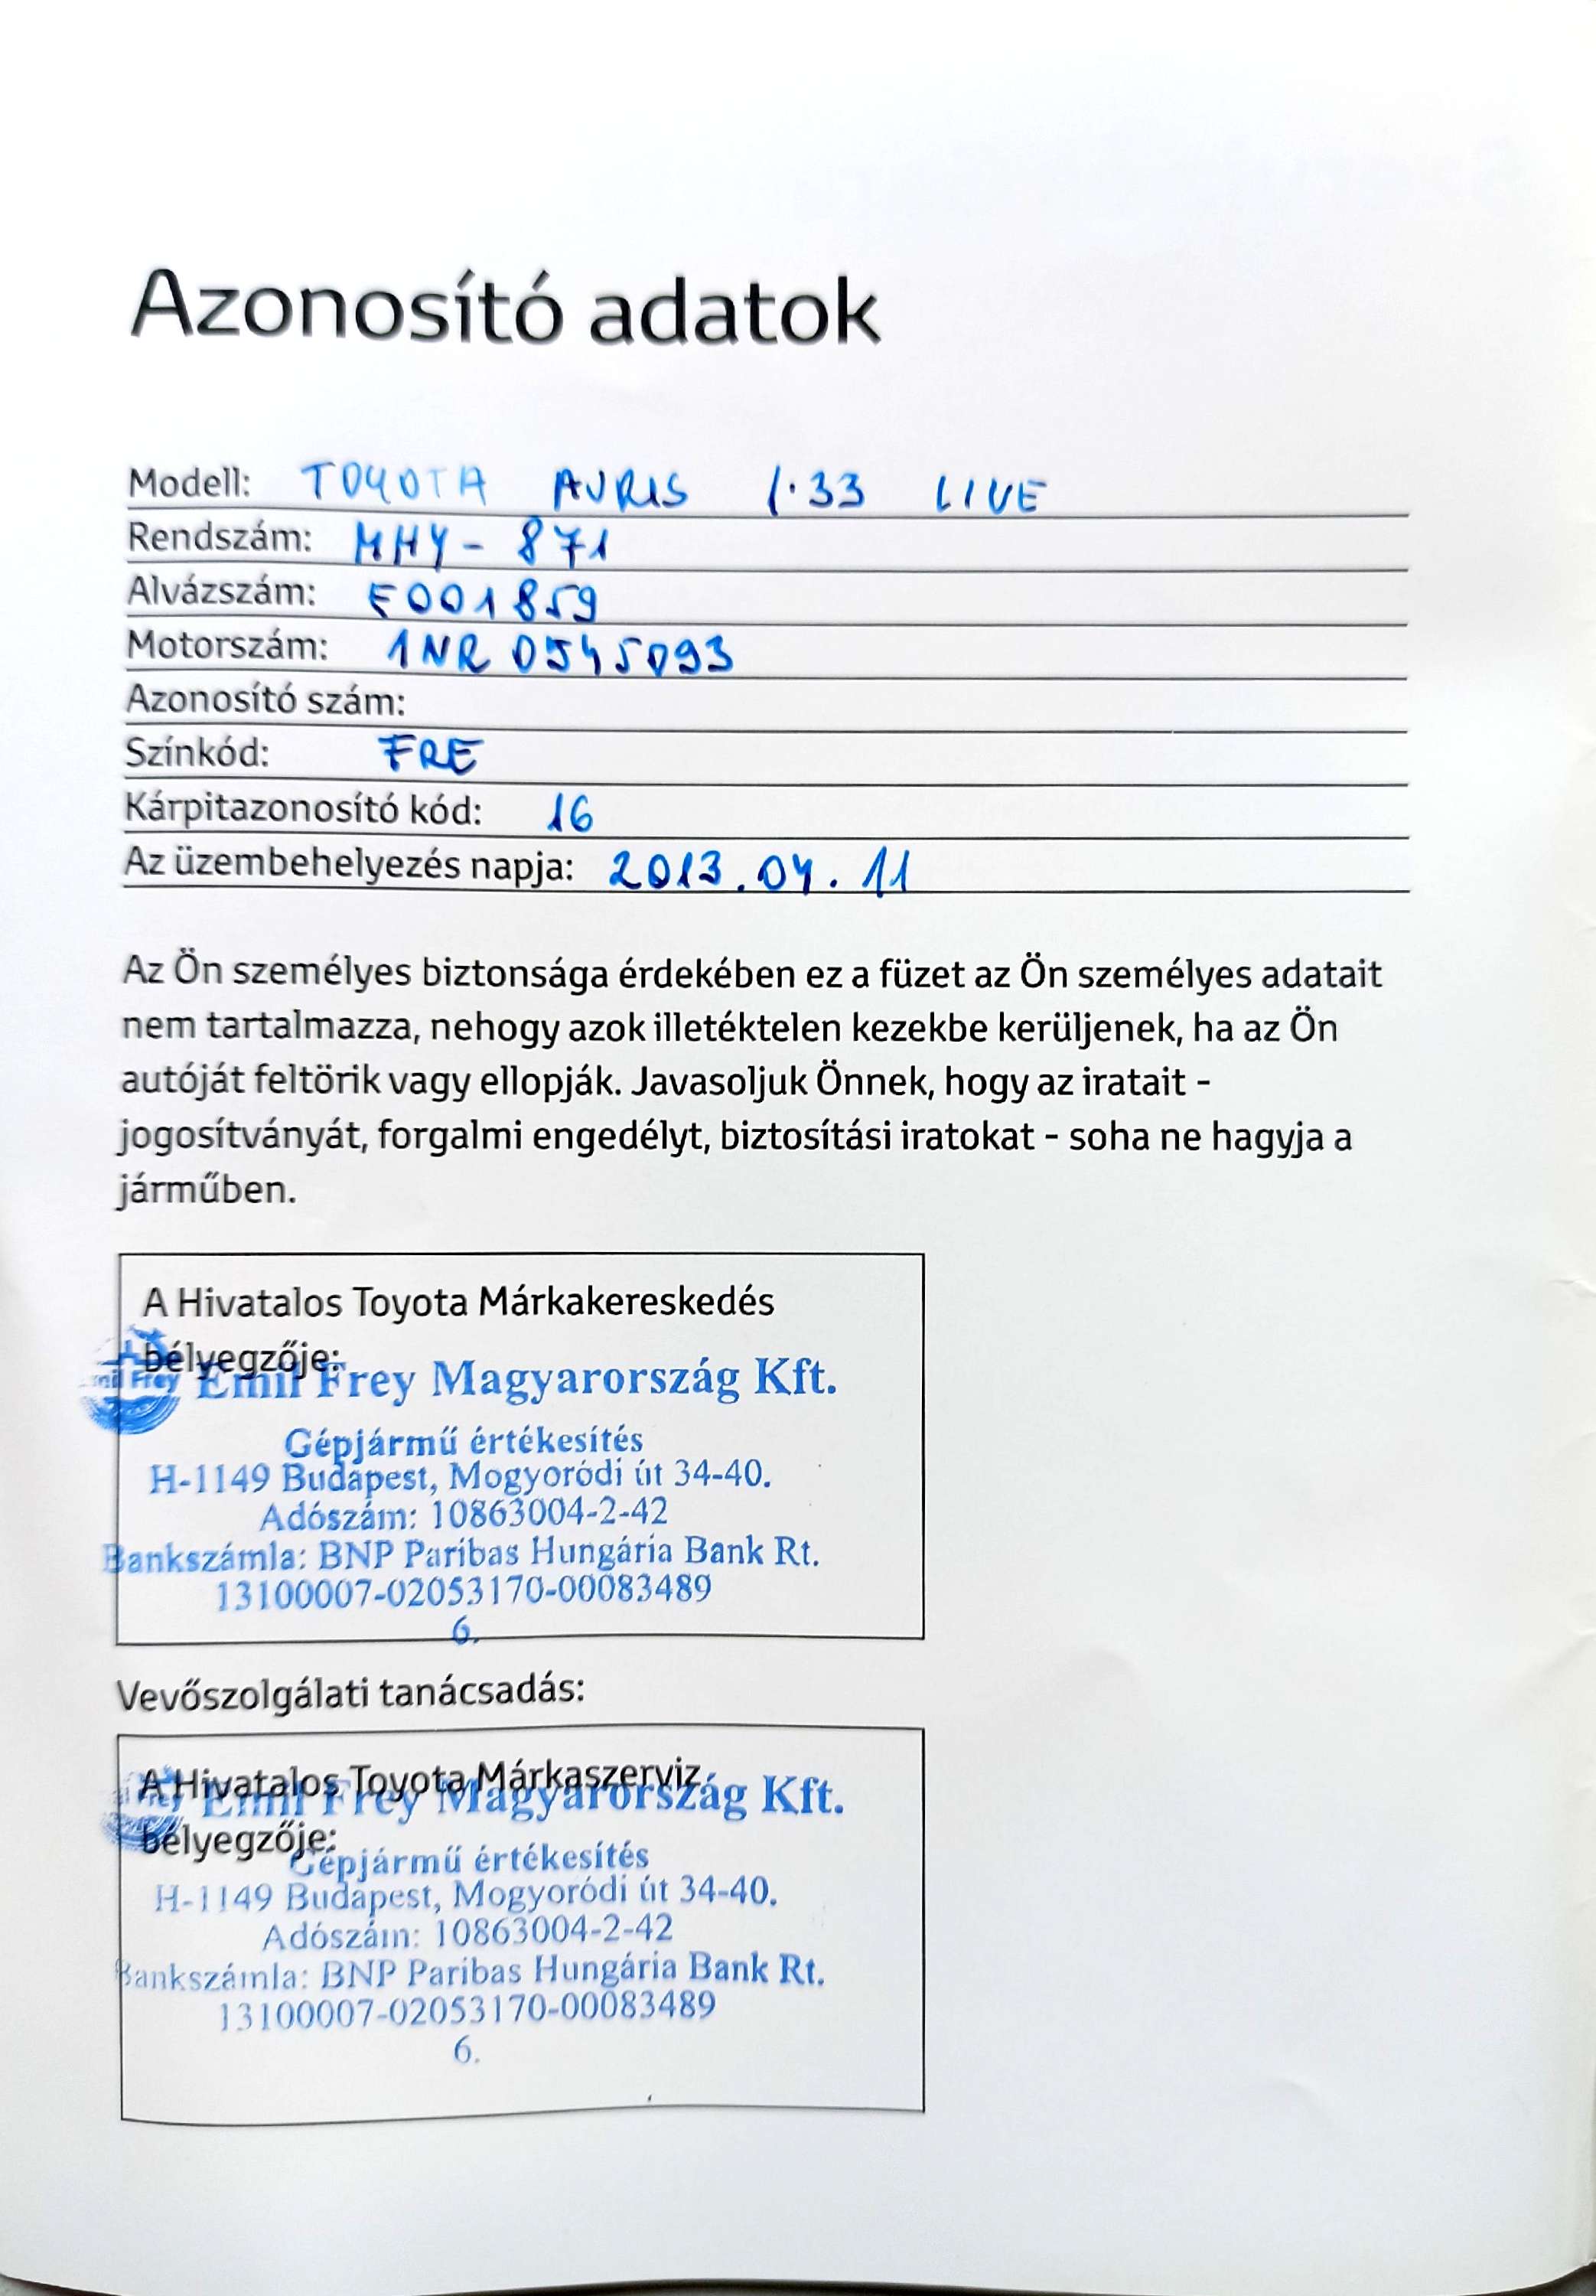 Azonosító adatok
Modell: TOYOTA AURIS 1.33 LIVE
Rendszám: MHY - 871
Alvázszám: E001859
Motorszám: 1NR 0545093
Azonosító szám:
Színkód: FRE
Kárpitazonosító kód: 16
Az üzembehelyezés napja: 2013.04.11
Az Ön személyes biztonsága érdekében ez a füzet az Ön személyes adatait
nem tartalmazza, nehogy azok illetéktelen kezekbe kerüljenek, ha az Ön
autóját feltörik vagy ellopják. Javasoljuk Önnek, hogy az iratait -
jogosítványát, forgalmi engedélyt, biztosítási iratokat - soha ne hagyja a
járműben.
A Hivatalos Toyota Márkakereskedés
bélyegzője:
Emil Frey Magyarország Kft.
Gépjármű értékesítés
H-1149 Budapest, Mogyoródi út 34-40.
Adószám: 10863004-2-42
Bankszámla: BNP Paribas Hungária Bank Rt.
13100007-02053170-00083489
6.
Vevőszolgálati tanácsadás:
A Hivatalos Toyota Márkaszerviz
Emil Frey Magyarország Kft.
bélyegzője:
Gépjármű értékesítés
H-1149 Budapest, Mogyoródi út 34-40.
Adószám: 10863004-2-42
Bankszámla: BNP Paribas Hungária Bank Rt.
13100007-02053170-00083489
6.